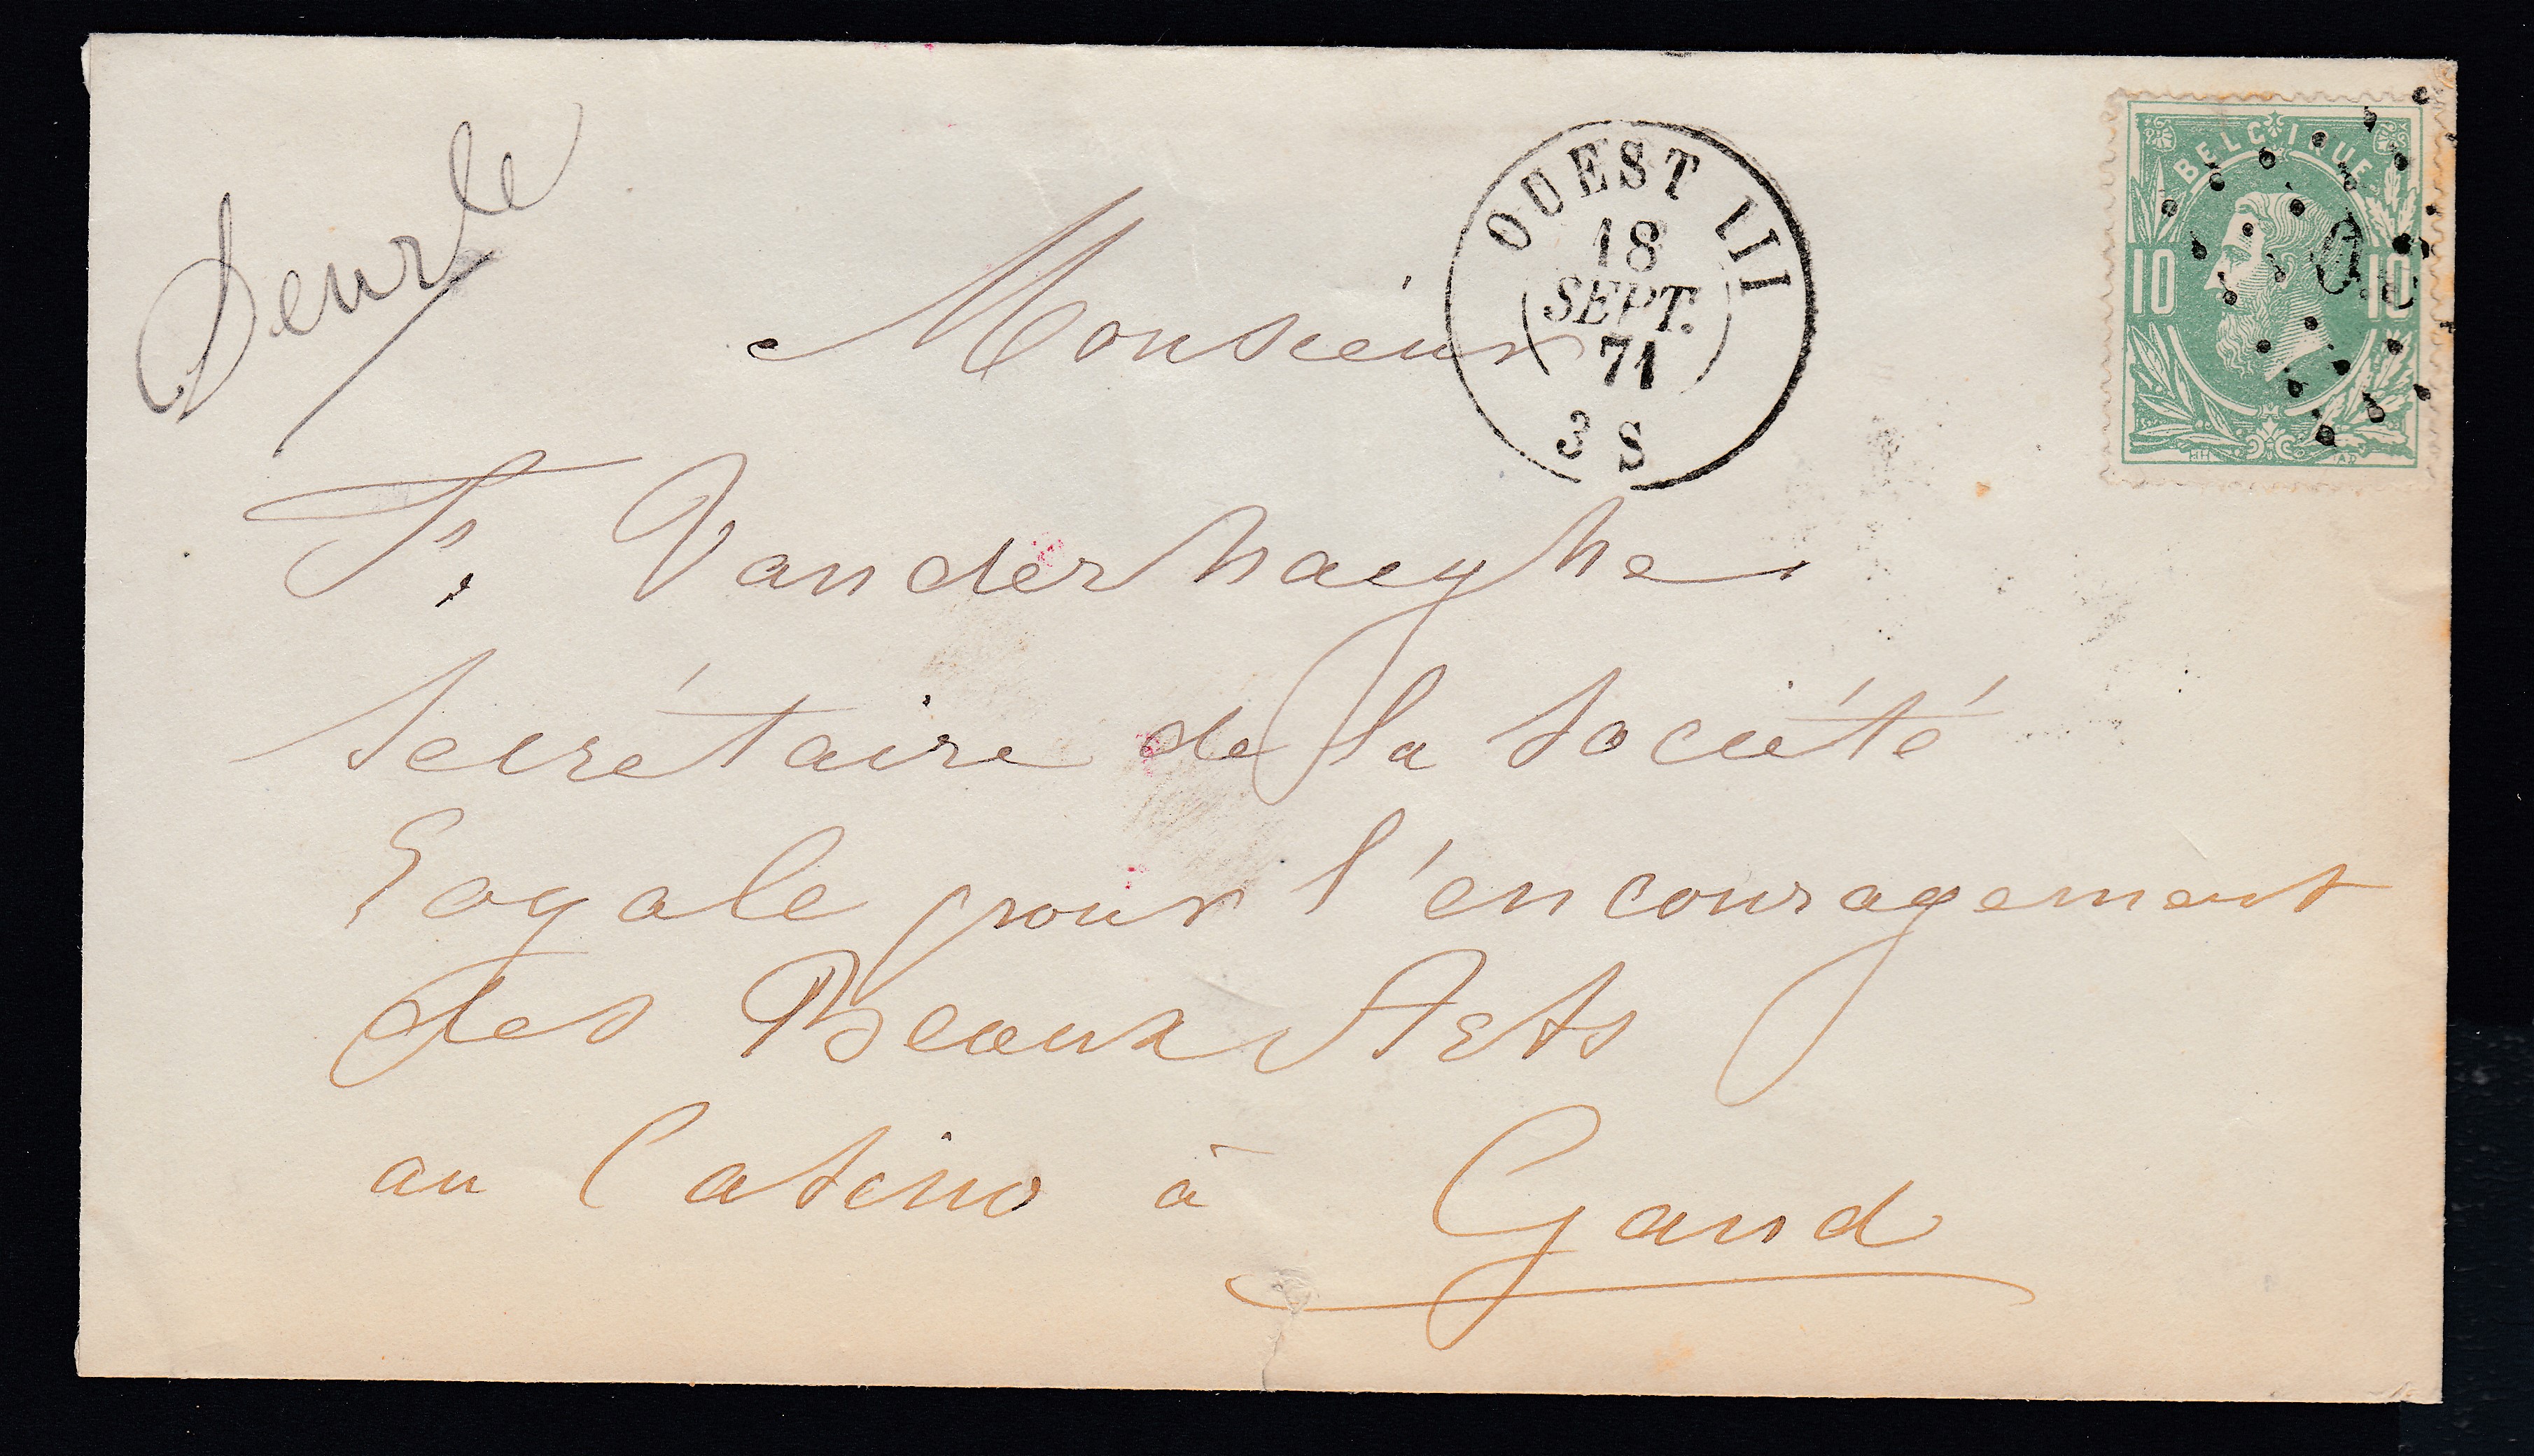 Deurle
OUEST III
18
SEPT.
71
3 S
BELGIQUE
10 10
O.
Monsieur
F. Vanderhaeghe
Secrétaire de la Société
Royale pour l'encouragement
des Beaux Arts
au Casino à Gand